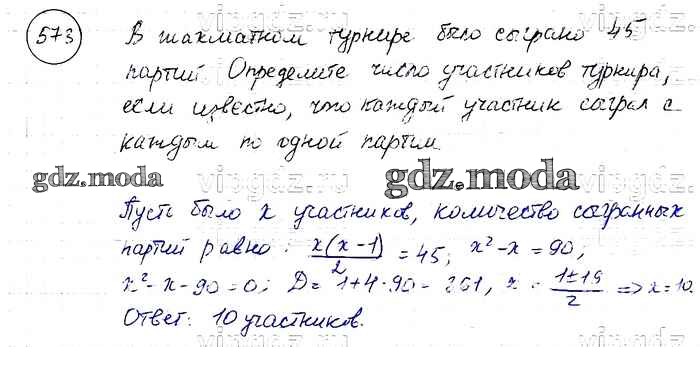 573 В шахматном турнире было сыграно 45
партий Определите число участников турнира,
если известно, что каждый участник сыграл с
каждым по одной партии.
gdz.moda gdz.moda
Пусть было x участников, количество сыгранных
партий равно: x(x-1)/2 = 45; x²-x=90;
x²-x-90=0; D=1+4·90=361, x = 1±19/2 => x=10
Ответ: 10 участников.